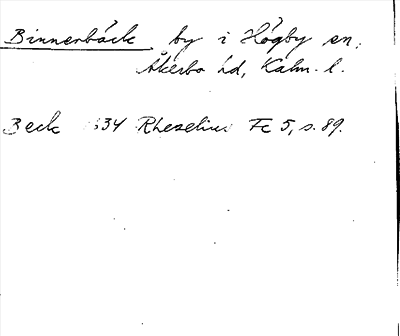 Binnerbäck by i Högby sn,
Åkerbo hd, Kalm. l.
Beck 34 Rhezelius Fc 5, s. 89.